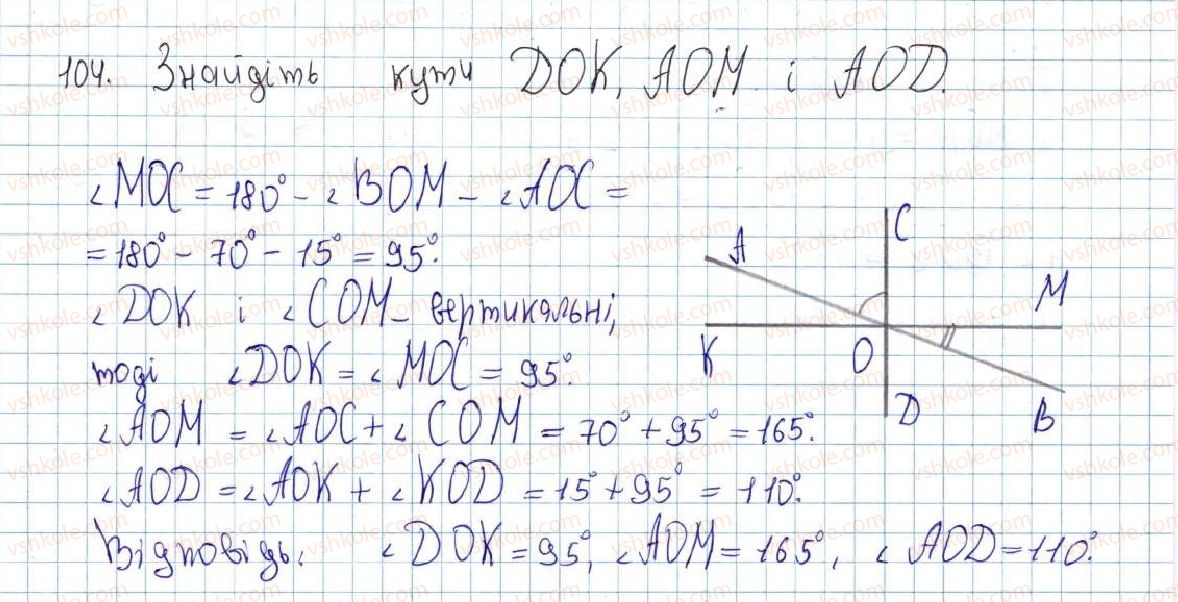 104. Знайдіть кути DOK, AOM і AOD.
∠MOC = 180° - ∠BOM - ∠AOC =
= 180° - 70° - 15° = 95°.
∠DOK і ∠COM - вертикальні,
тоді ∠DOK = ∠MOC = 95°.
∠AOM = ∠AOC + ∠COM = 70° + 95° = 165°.
∠AOD = ∠AOK + ∠KOD = 15° + 95° = 110°.
Відповідь: ∠DOK = 95°, ∠AOM = 165°, ∠AOD = 110°.
C
A
M
K
O
D
B
vshkole.com